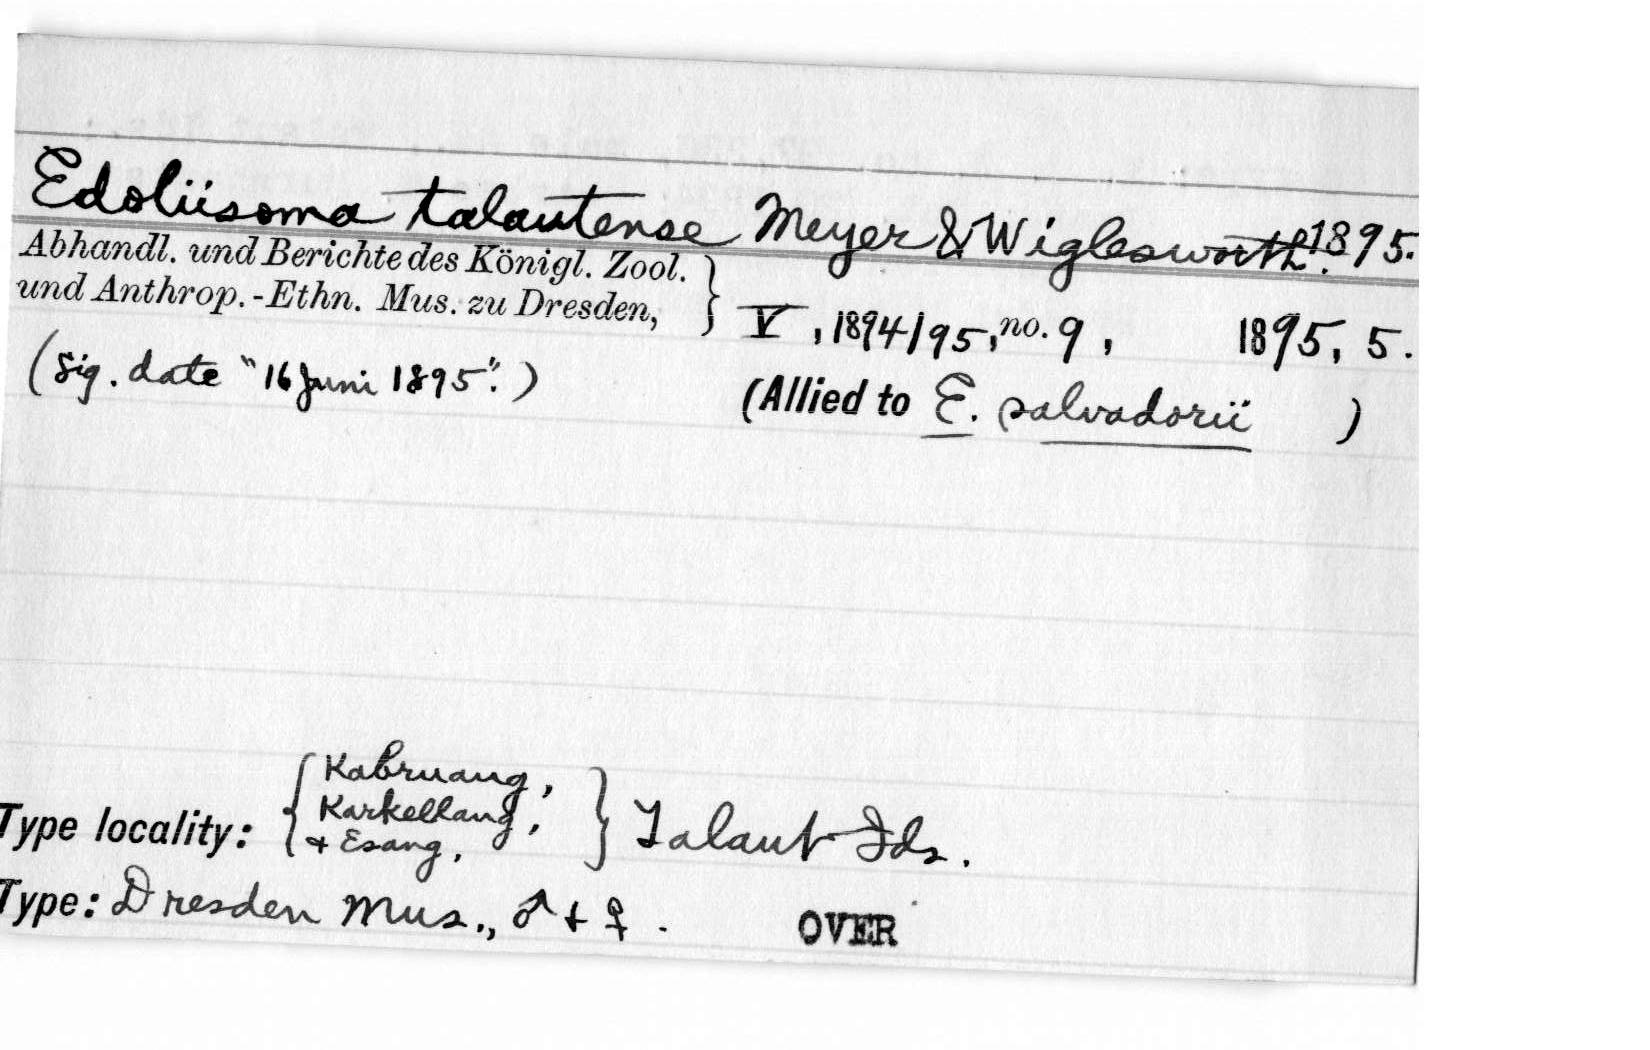 Edoliisoma talautense Meyer & Wiglesworth. 1895.
Abhandl. und Berichte des Königl. Zool.
und Anthrop.-Ethn. Mus. zu Dresden, } V, 1894/95, no. 9, 1895, 5.
(Sig. date "16 Juni 1895".) (Allied to E. salvadorii )
Kabruang,
Karkellang,
Type locality: { + Esang, } Talaut Ids.
Type: Dresden Mus., ♂ + ♀. OVER